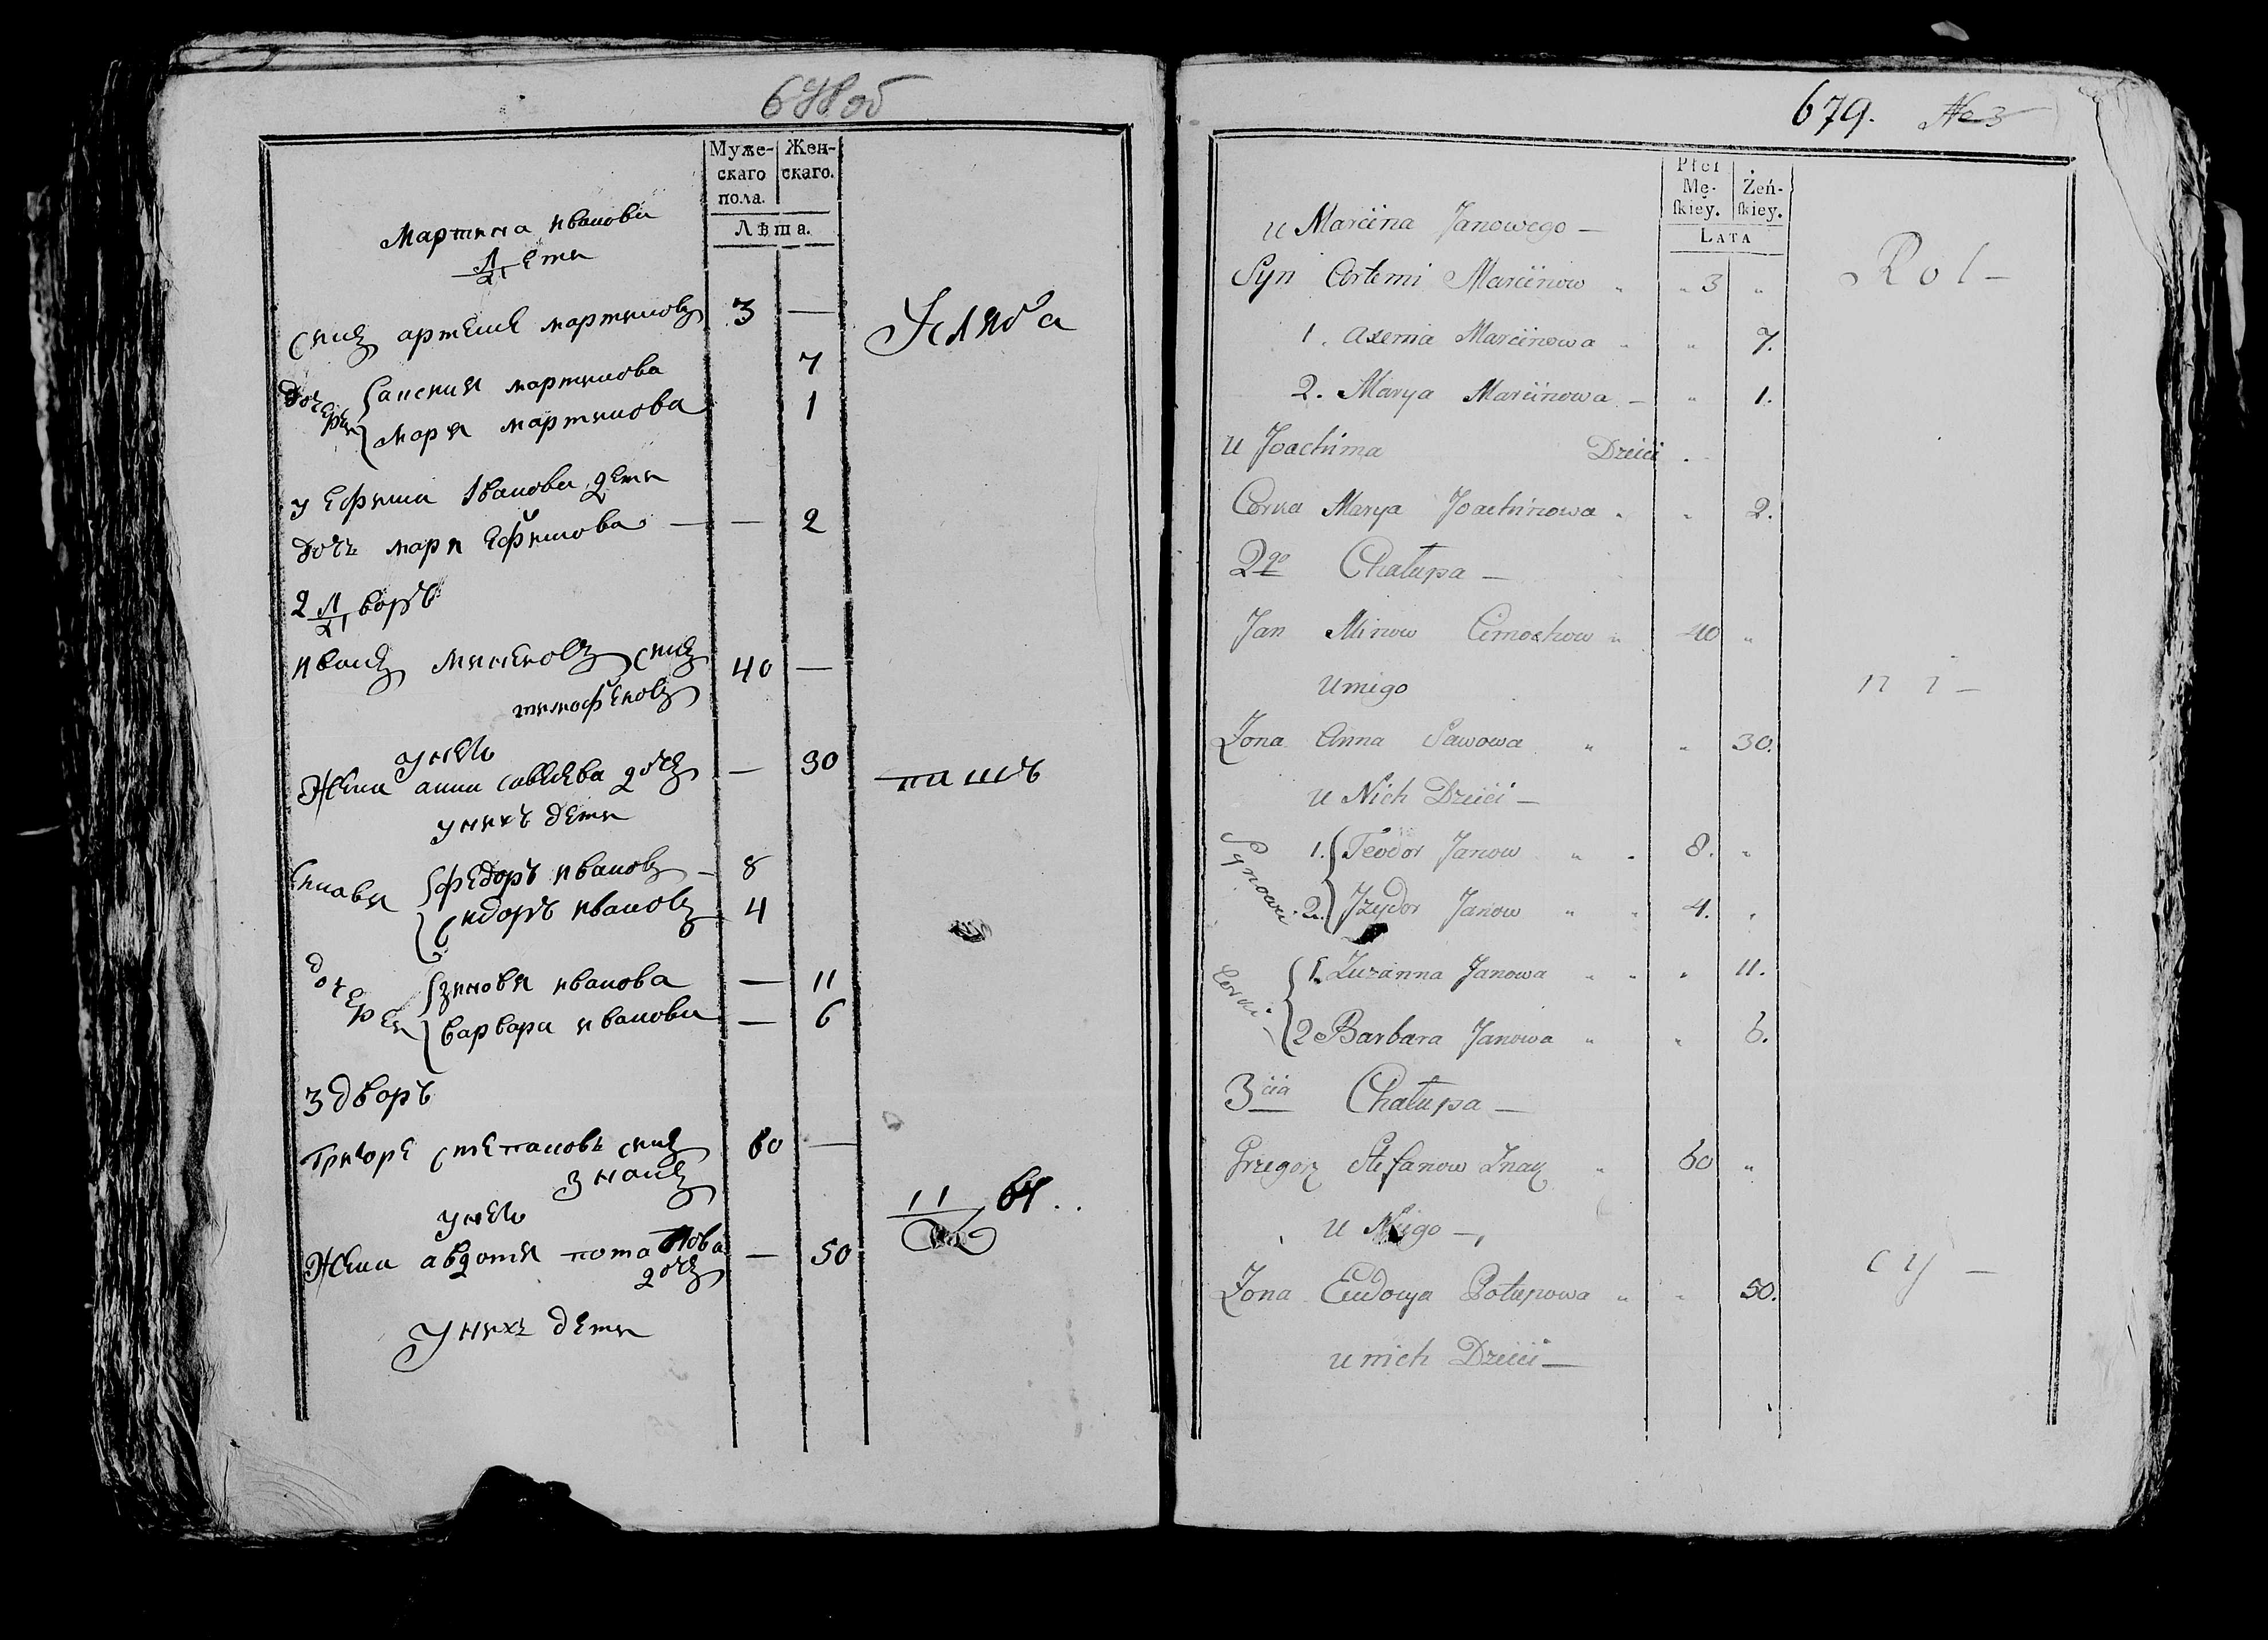 678 об
Муже- Жен-
скаго скаго.
пола.
Лѣта.
Мартина иванова
Дети
Синъ артеме мартиновъ 3 —
хляба
Дочери аксиния мартинова 7
Маря мартинова 1
у Ефима Иванова дети
дочь маря Ефимова — — 2
2 Дворъ
иванъ миневъ синъ 40 —
тимофеновъ
у него
Жена анна савиева дочъ — 30
пашъ
у нихъ дети
Синовя федоръ ивановъ — 8
Сидоръ ивановъ 4
дочери зиновя иванова — 11
варвара иванова — 6
3 дворъ
Григоре степановъ синъ 60 —
знакъ
у него
Жена авдотя потапова — 50
дочъ
У нихъ дети
679. № 3
Płci
Mę- Żeń-
skiey. skiey.
LATA
u Marcina Janowego —
Rol —
Syn Artemi Marcinow „ „ 3 „
1. Axenia Marcinowa „ „ 7.
2. Marya Marcinowa — „ 1.
u Joachima Dzieci .
Corka Marya Joachimowa „ „ 2.
2go Chałupa —
Jan Minow Cimochow „ 40 „
U niego
n i —
Zona Anna Sawowa „ „ 30.
U Nich Dzieci —
Synowie 1. Teodor Janow „ „ 8. „
2. Jzydor Janow „ „ 4. „
Corki 1. Zuzanna Janowa „ „ „ 11.
2 Barbara Janowa „ „ 6.
3cia Chałupa —
Grzegorz Stefanow Znak „ 60 „
U Niego —
cy —
Zona Eudocya Potapowa „ „ 50.
U nich Dzieci —